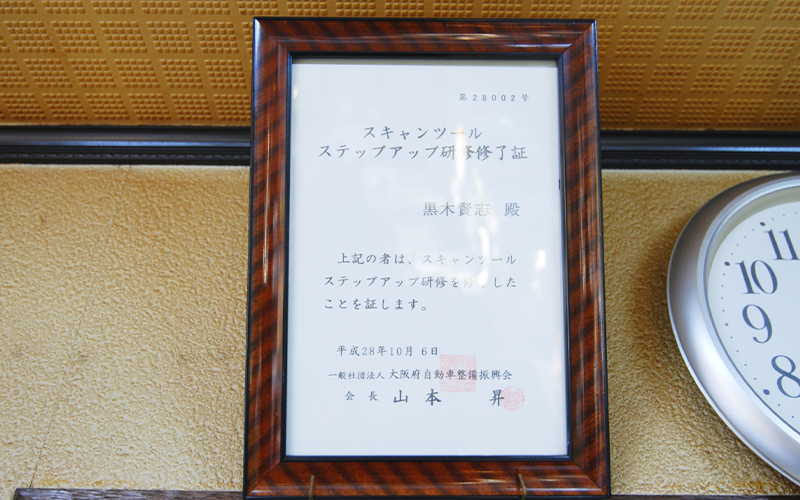 第28002号
スキャンツール
ステップアップ研修修了証
黒木賢志 殿
上記の者は、スキャンツール
ステップアップ研修を修了した
ことを証します。
平成28年10月6日
一般社団法人 大阪府自動車整備振興会
会長 山本 昇
11
10
9
8